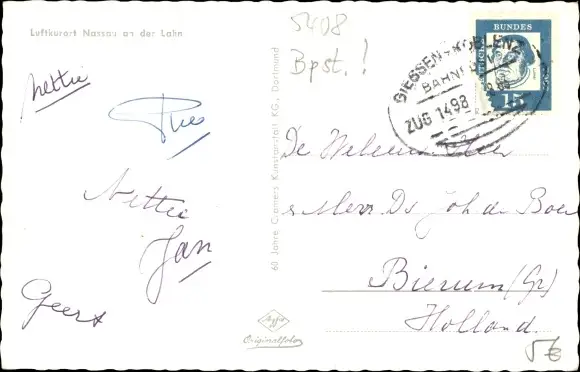 Luftkurort Nassau an der Lahn
5408
Bpst.!
Nettie
Theo
Nettie
Jan
Geert
60 Jahre Cramers Kunstanstalt KG., Dortmund
BUNDES
15
GIESSEN - KOBLENZ
BAHNPOST
ZUG 1498
De Weleerw. Heer
& Mevr. Ds Joh de Boer
Bierum (Gr)
Holland.
Agfa
Originalfoto